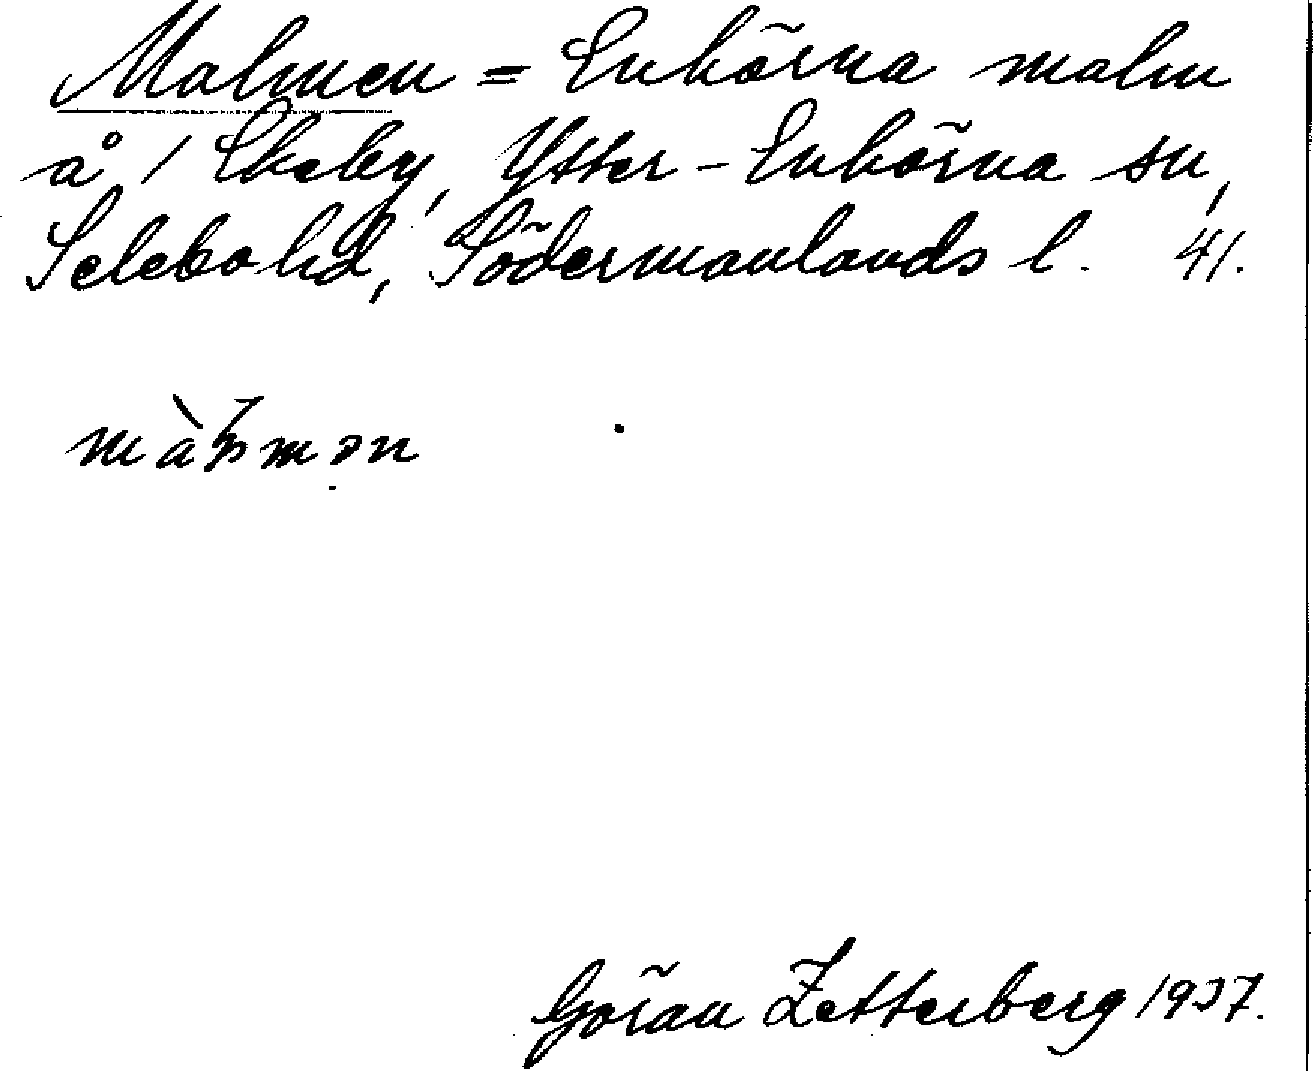 Malmen = Enhörna malm
å 1 Ekeby, Ytter-Enhörna sn,
Selebo hd, Södermanlands l. 41.
Göran Zetterberg 1937.